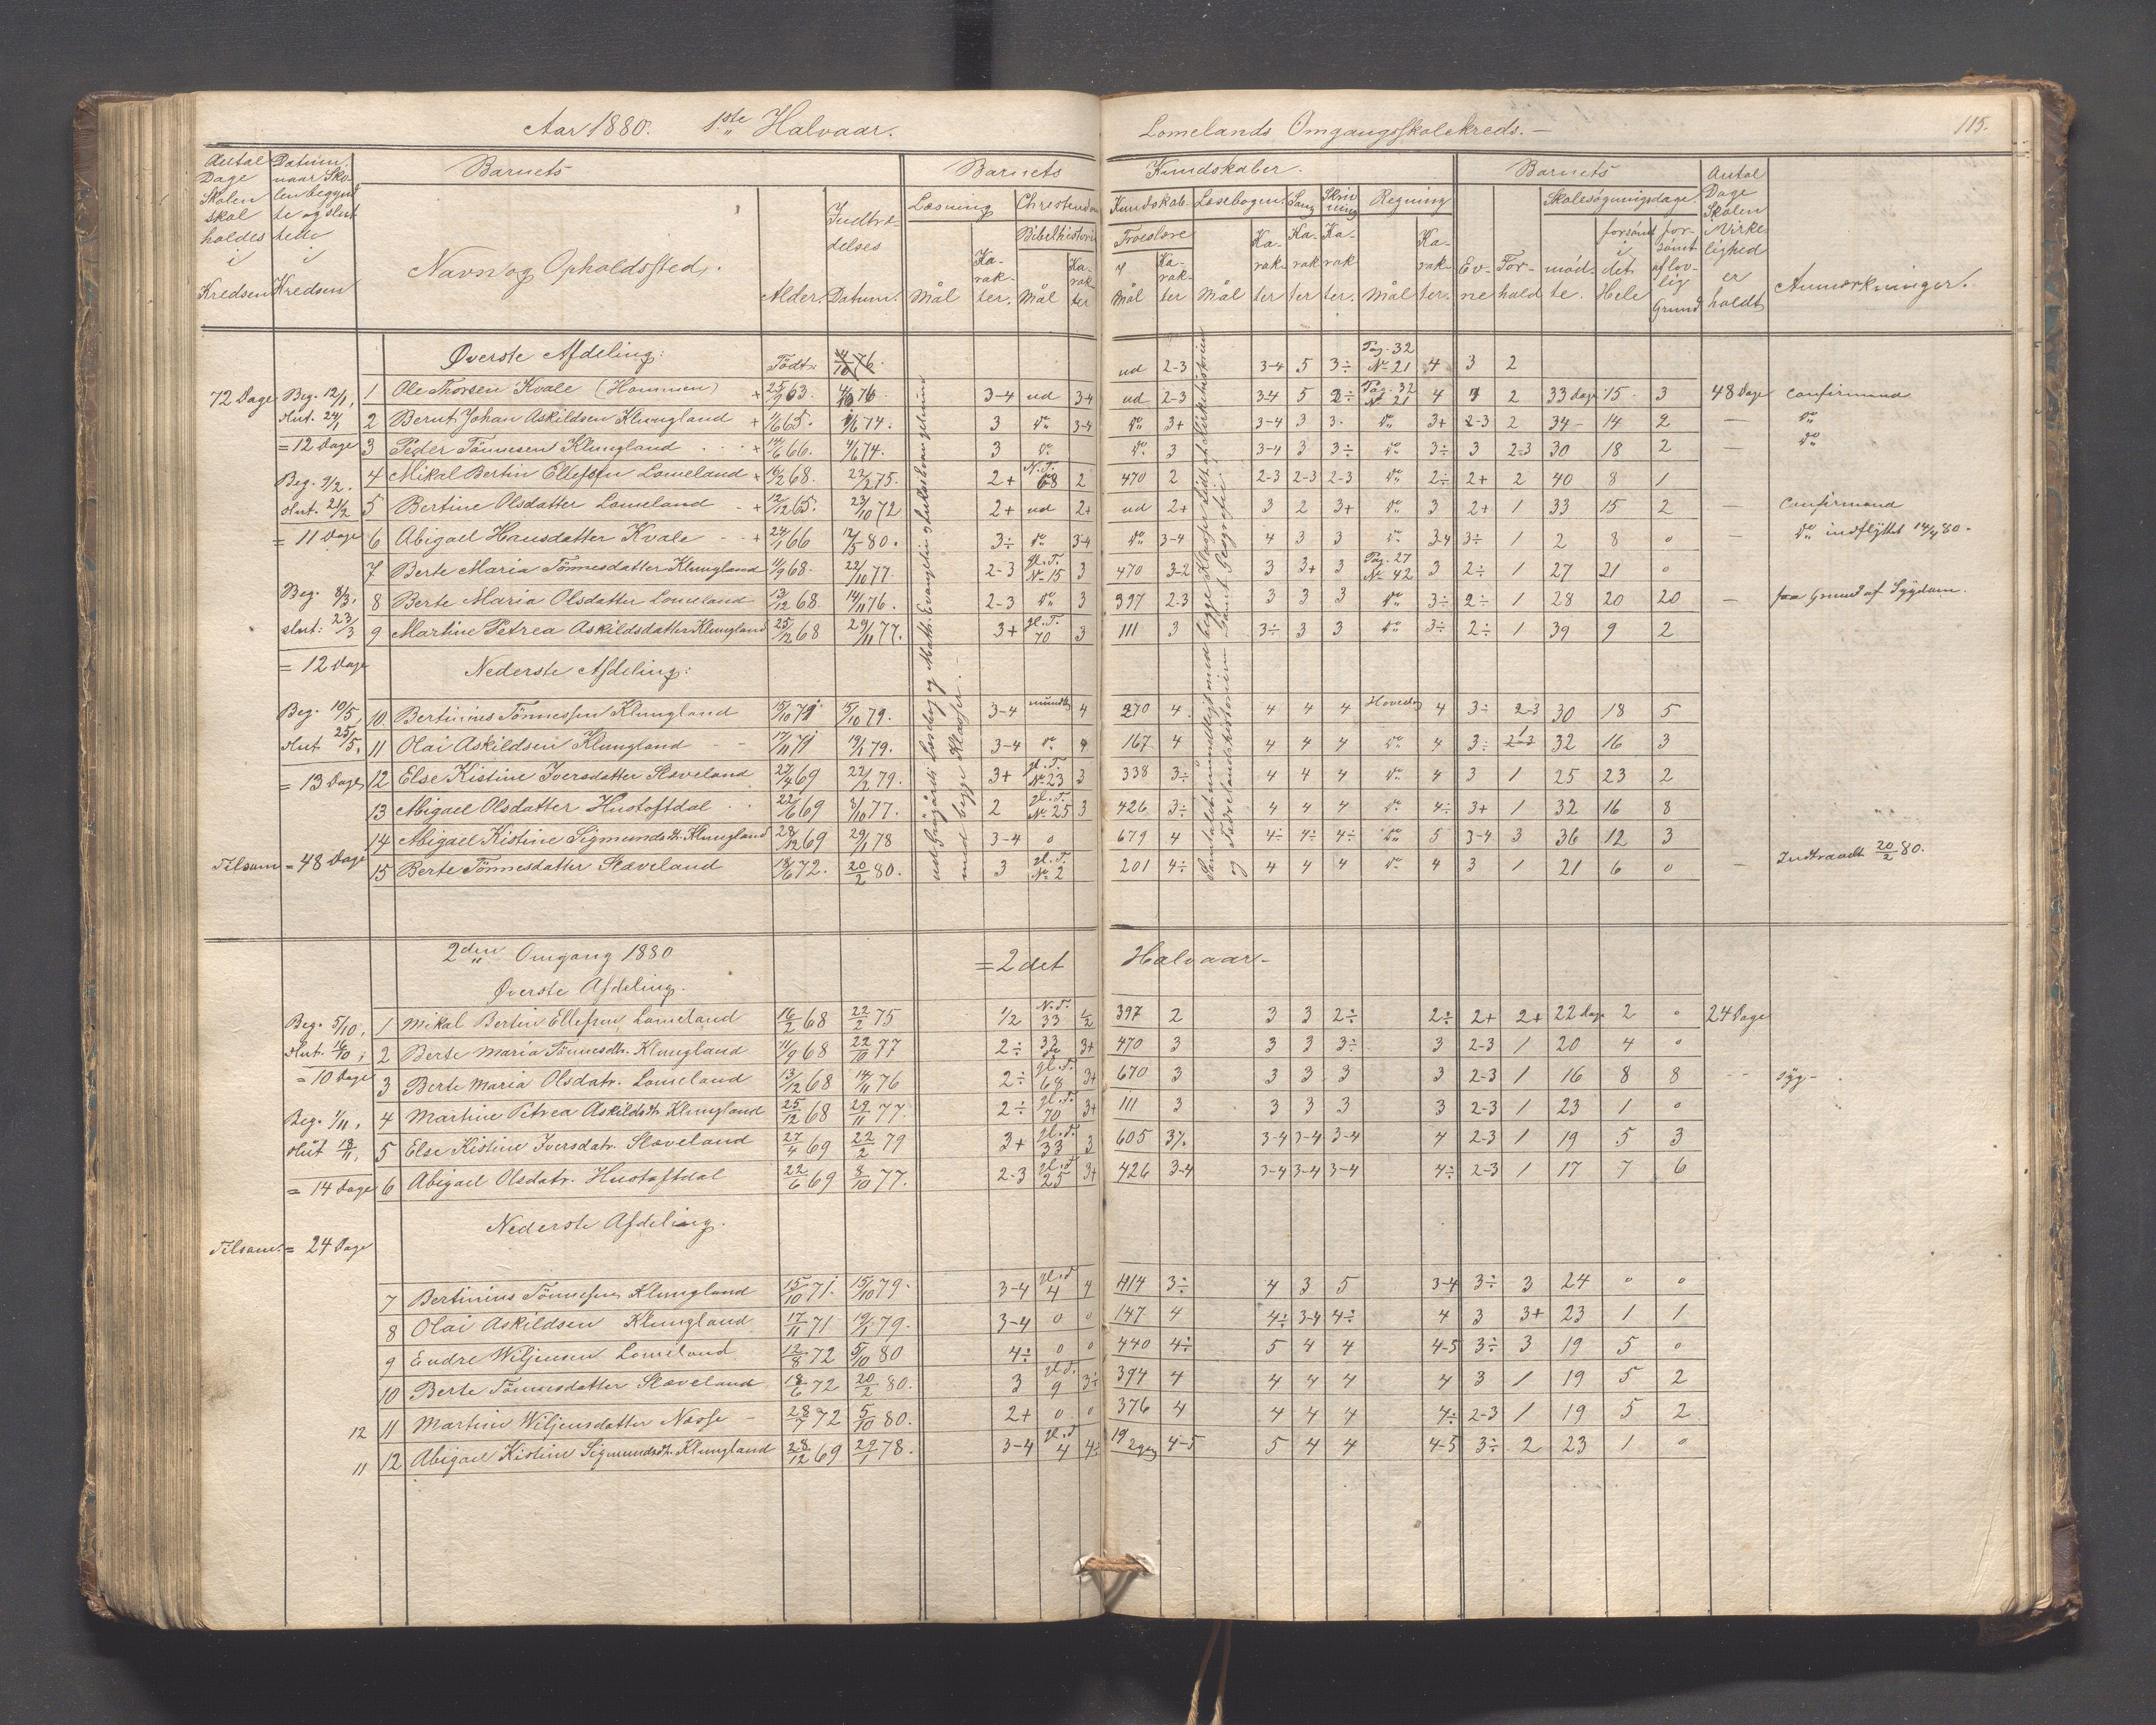 Aar 1880. 1ste Halvaar. Lomelands Omgangsskolekreds. 115.
Antal Dage Skolen skal holdes i Kredsen
Datum naar Skolen begyndte og sluttede i Kredsen
Barnets
Navn og Opholdssted.
Alder.
Indtrædelses Datum.
Barnets Kundskaber.
Læsning Mål Karakter.
Christendom Kundskab.
Bibelhistorie Mål Karakter
Troeslære Mål Karakter
Læsebogen. Mål Karakter
Sang Karakter
Skrivning Karakter.
Regning Mål Karakter.
Barnets
Evne Forhold
Skolesøgningsdage. mødte. forsømt i det Hele forsømt af lovlig Grund
Antal Dage Skolen Virkelighed er holdt
Anmærkninger.
Øverste Afdeling: Födt: 4/10 76. ud 2-3 3-4 5 3÷ Pag. 32 No 21 4 3 2
72 Dage Beg. 12/1, 1 Ole Thorsen Kvale (Hammen) + 25/9 63. 4/10 76 3-4 ud 3-4 ud 2-3 3-4 5 2÷ Pag. 32 No 21 4 2 33 dage 15 3 48 Dage Confirmand
slut. 24/1 2 Bernt Johan Askildsen Klungland + 1/6 65. 1/6 74. 3 do 3-4 do 3+ 3-4 3 3. do 3+ 2-3 2 34 14 2 — do
= 12 Dage 3 Peder Tönnesen Klungland + 14/6 66. 4/6 74. 3 do do 3 3-4 3 3÷ do 3÷ 3 2-3 30 18 2 — do
Beg. 9/2. 4 Mikal Bertin Ellefsen Lomeland + 16/2 68. 22/2 75. 2+ N.T. 68 2 470 2 2-3 2-3 2-3 do 2÷ 2+ 2 40 8 1
slut. 21/2 5 Bertine Olsdatter Lomeland + 12/12 65. 23/10 72 2+ ud 2+ ud 2+ 3 2 3+ do 3 2+ 1 33 15 2 — Confirmand
= 11 Dage 6 Abigael Hansdatter Kvale + 24/1 66 12/5 80. 3÷ do 3-4 do 3-4 4 3 3 do 3-4 3÷ 1 2 8 0 — do indflyttet 14/4 80.
7 Berte Maria Tönnesdatter Klungland 11/9 68. 22/10 77. 2-3 gl. T. No 15 3 470 3-2 3 3+ 3 Pag. 27 No 42 3 2÷ 1 27 21 0
Beg. 8/3, 8 Berte Maria Olsdatter Lomeland 13/12 68. 14/11 76. 2-3 do 3 397 2-3 3 3 3 do 3÷ 2÷ 1 28 20 20 — paa Grund af Sygdom.
slut: 23/3 9 Martine Petrea Askildsdatter Klungland 25/12 68 29/11 77. 3+ gl. T. 70 3 111 3 3÷ 3 3 do 3÷ 2÷ 1 39 9 2
= 12 Dage Nederste Afdeling:
Beg. 10/5, 10. Bertinius Tönnessen Klungland 15/10 71 15/10 79. 3-4 mundtlig 4 270 4 4 4 4 Hoved 4 3÷ 2-3 30 18 5
slut 25/5, 11 Olai Askildsen Klungland 17/11 71 19/1 79. 3-4 do 4 167 4 4 4 4 do 4 3÷ 1 32 16 3
= 13 Dage 12 Else Kistine Iversdatter Slæveland 27/4 69 22/2 79. 3+ gl. T. No 23 3 338 3÷ 4 4 4 do 4 3 1 25 23 2
13 Abigael Olsdatter Hustoftdal 22/6 69 8/10 77. 2 gl. T. No 25 3 426 3÷ 4 4 4 do 4÷ 3+ 1 32 16 8
14 Abigael Kistine Sigmundsdtr. Klungland 28/12 69 29/1 78 3-4 0 679 4 4÷ 4÷ 4÷ do 5 3-4 3 36 12 3
Tilsam = 48 Dage 15 Berte Tönnesdatter Slæveland 18/6 72. 20/2 80. 3 gl. T. No 2 201 4÷ 4 4 4 do 4 3 1 21 6 0 — Indtraadt 20/2 80.
ud
med begge Klasser.
og Fædrelandshistorien samt Geografie.
2den Omgang 1880 = 2det Halvaar
Øverste Afdeling.
Beg. 5/10, 1 Mikal Bertin Ellefsen Lomeland 16/2 68 22/2 75 1/2 N.T. 33 1/2 397 2 3 3 2÷ 2÷ 2+ 2+ 22 dage 2 0 24 Dage
slut. 16/10, 2 Berte Maria Tönnesdtr. Klungland 11/9 68 22/10 77 2÷ 33 3+ 470 3 3 3 3÷ 3 2-3 1 20 4 0
= 10 Dage 3 Berte Maria Olsdatr. Lomeland 13/12 68 14/11 76 2÷ gl.T. 68 3+ 670 3 3 3 3 3 2-3 1 16 8 8 syg
Beg. 1/11, 4 Martine Petrea Askildsdtr. Klungland 25/12 68 29/11 77. 2÷ gl.T. 70 3+ 111 3 3 3 3 3 2-3 1 23 1 0
slut 18/11, 5 Else Kistine Iversdatr. Slæveland 27/4 69 22/2 79 3+ gl.T. 33 3 605 3÷ 3-4 3-4 3-4 4 2-3 1 19 5 3
= 14 Dage 6 Abigael Olsdatr. Hustoftdal 22/6 69 8/10 77. 2-3 gl.T. 25 3+ 426 3-4 3-4 3-4 3-4 4÷ 2-3 1 17 7 6
Nederste Afdeling.
Tilsam. = 24 Dage
7 Bertinius Tönnesen Klungland 15/10 71. 15/10 79. 3-4 gl.T. 4 4 414 3÷ 4 3 5 3-4 3÷ 3 24 0 0
8 Olai Askildsen Klungland 17/11 71 19/1 79. 3-4 0 0 147 4 4÷ 3-4 4÷ 4 3 3+ 23 1 1
9 Endre Wiljensen Lomeland 12/8 72 5/10 80 4÷ 0 0 440 4÷ 5 4 4 4-5 3÷ 3 19 5 0
10 Berte Tönnesdatter Slæveland 18/6 72 20/2 80. 3 gl.T. 9 3÷ 394 4 4 4 4 4 3 1 19 5 2
12 11 Martine Wiljensdatter Nosse 28/7 72 5/10 80. 2+ 0 0 376 4 4 4 4 4÷ 2-3 1 19 5 2
11 12 Abigael Kistine Sigmundsdtr. Klungland 28/12 69 29/1 78. 3-4 gl.T. 4 4÷ 19 4-5 5 4 4 4-5 3÷ 2 23 1 0